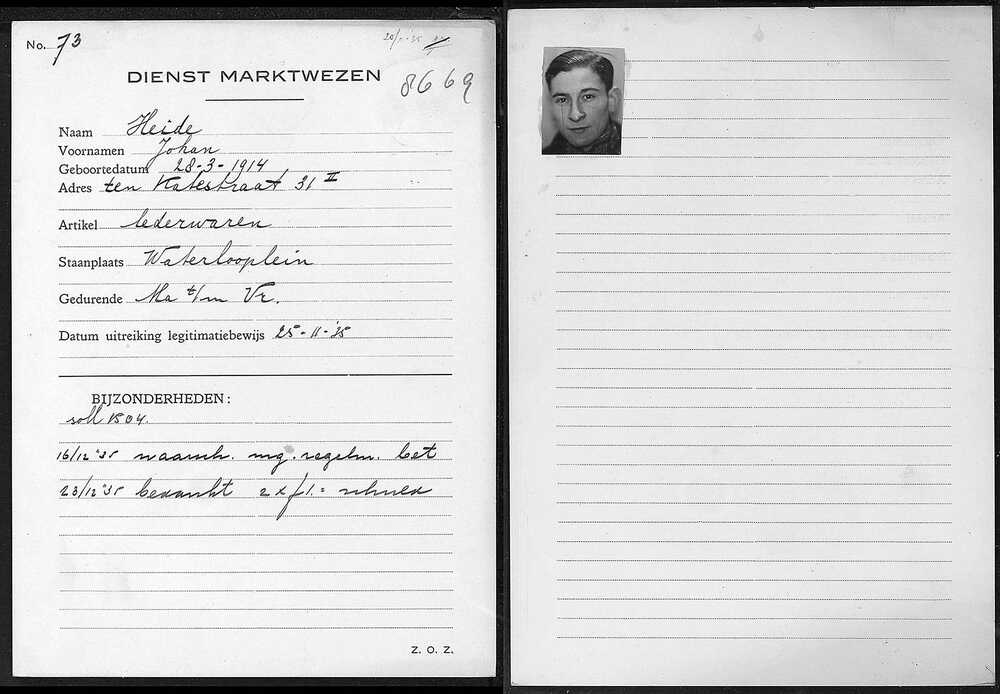 No. 73
8669
DIENST MARKTWEZEN
Naam Heide
Voornamen Johan
Geboortedatum 28-3-1914
Adres ten Katestraat 31 II
Artikel lederwaren
Staanplaats Waterlooplein
Gedurende Ma t/m Vr.
Datum uitreiking legitimatiebewijs 25-11-'35
BIJZONDERHEDEN:
soll 1804.
16/12 '35 waarsch. mg. regelm. bet
23/12 '35 bedankt 2 x f 1.= schuld
Z. O. Z.